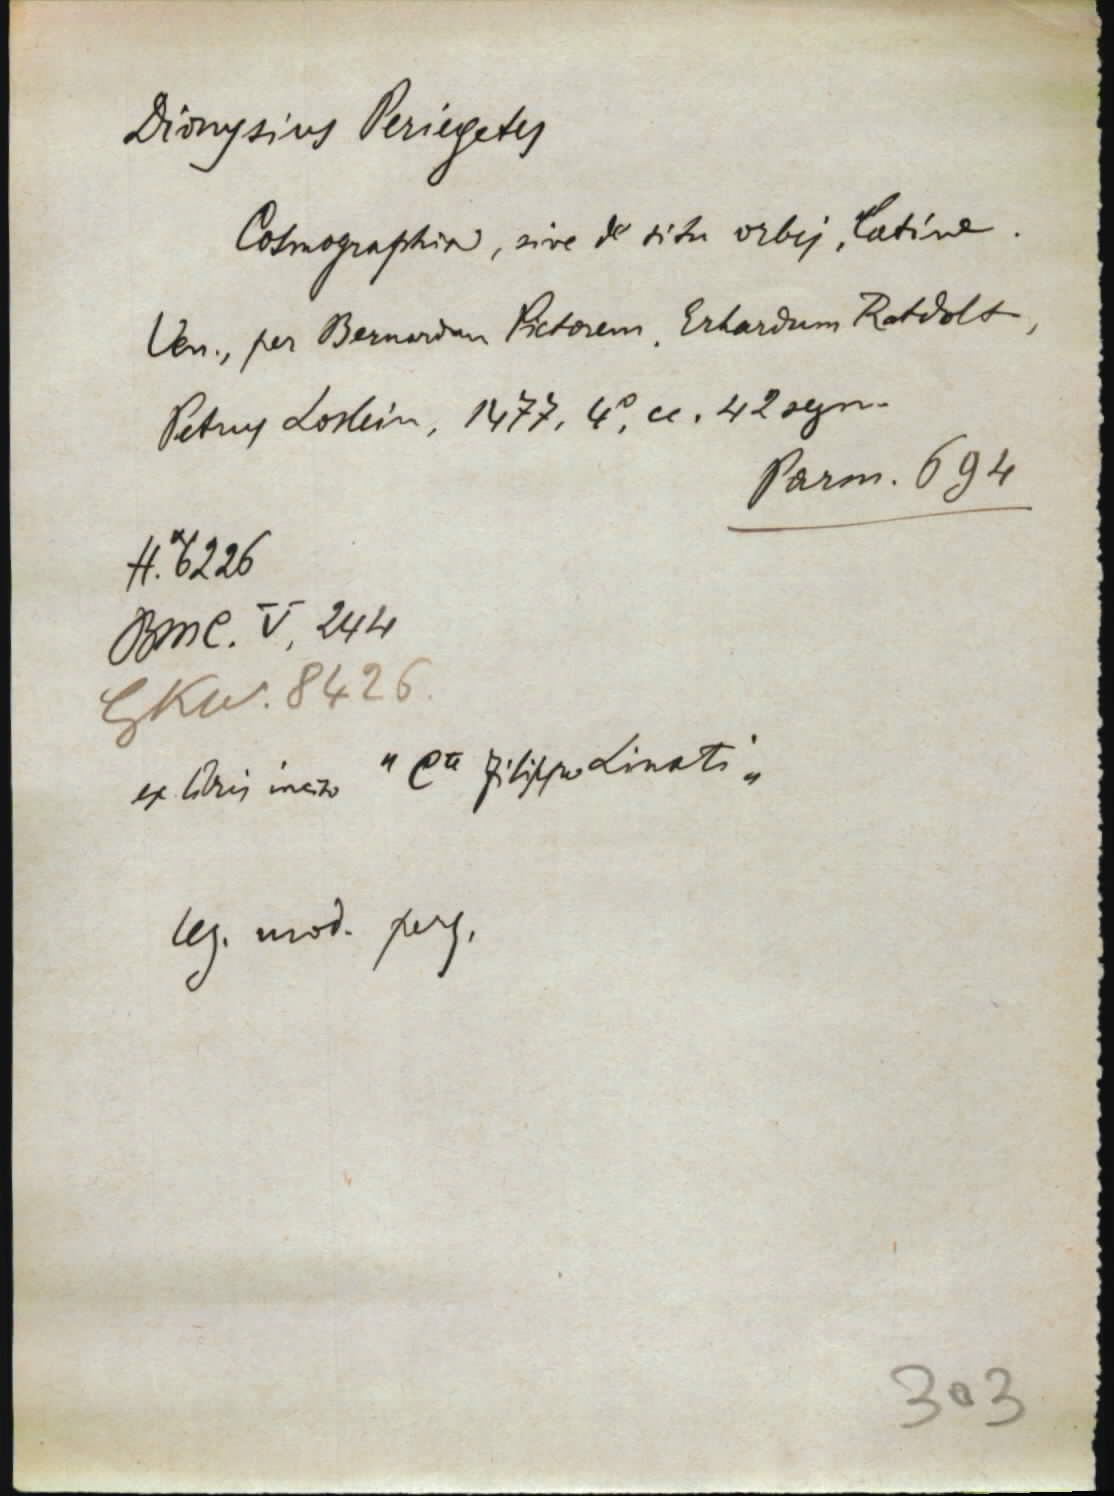 Dionysius Periegetes
Cosmographia, sive de situ orbis, latine.
Ven., per Bernardum Pictorem, Erhardum Ratdolt,
Petrus Loslein, 1477, 4°, cc. 42 segn.
Parm. 694
H.*6226
BMC. V, 244
GKW. 8426.
ex libris inciso "Cte Filippo Linati"
leg. mod. perg.
303